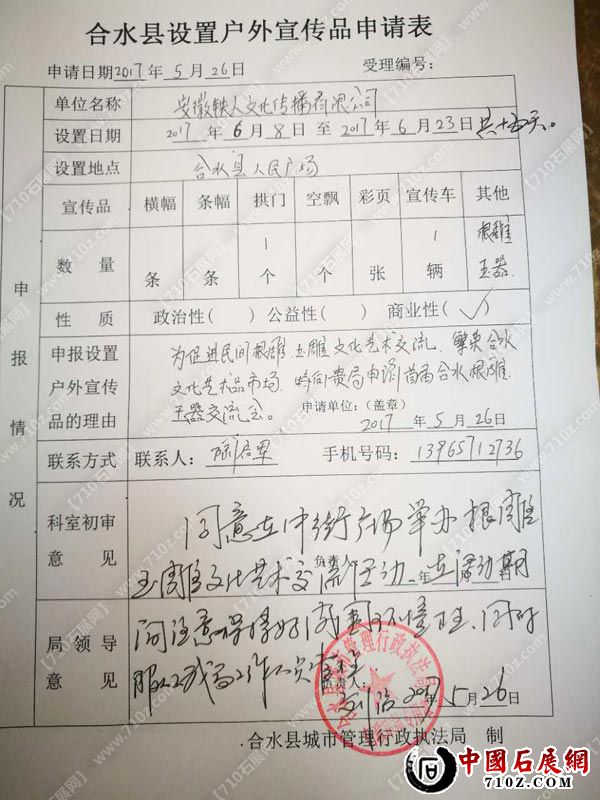 合水县设置户外宣传品申请表
申请日期2017年5月26日 受理编号：
单位名称 安徽铁人文化传播有限公司
设置日期 2017年6月8日至2017年6月23日共十五天。
设置地点 合水县人民广场
宣传品 横幅 条幅 拱门 空飘 彩页 宣传车 其他
数量 条 条 1个 个 张 1辆 根雕玉器
性质 政治性( ) 公益性( ) 商业性(✓)
申报情况
申报设置户外宣传品的理由
为促进民间根雕、玉雕文化艺术交流、繁荣合水
文化艺术品市场、特向贵局申请首届合水根雕
玉器交流会。 申请单位：(盖章)
2017年5月26日
联系方式 联系人： 手机号码：13965712736
科室初审意见
同意在中街广场举办根雕
玉雕文化艺术交流活动 在活动期
负责人 年
局领导意见
间注意保持好周围环境卫生、同时
服从我局工作人员
负责人 2017年5月26日
合水县 管理行政执法局
合水县城市管理行政执法局 制
中國石展網
710Z.COM
【710石展网】
www.710z.com